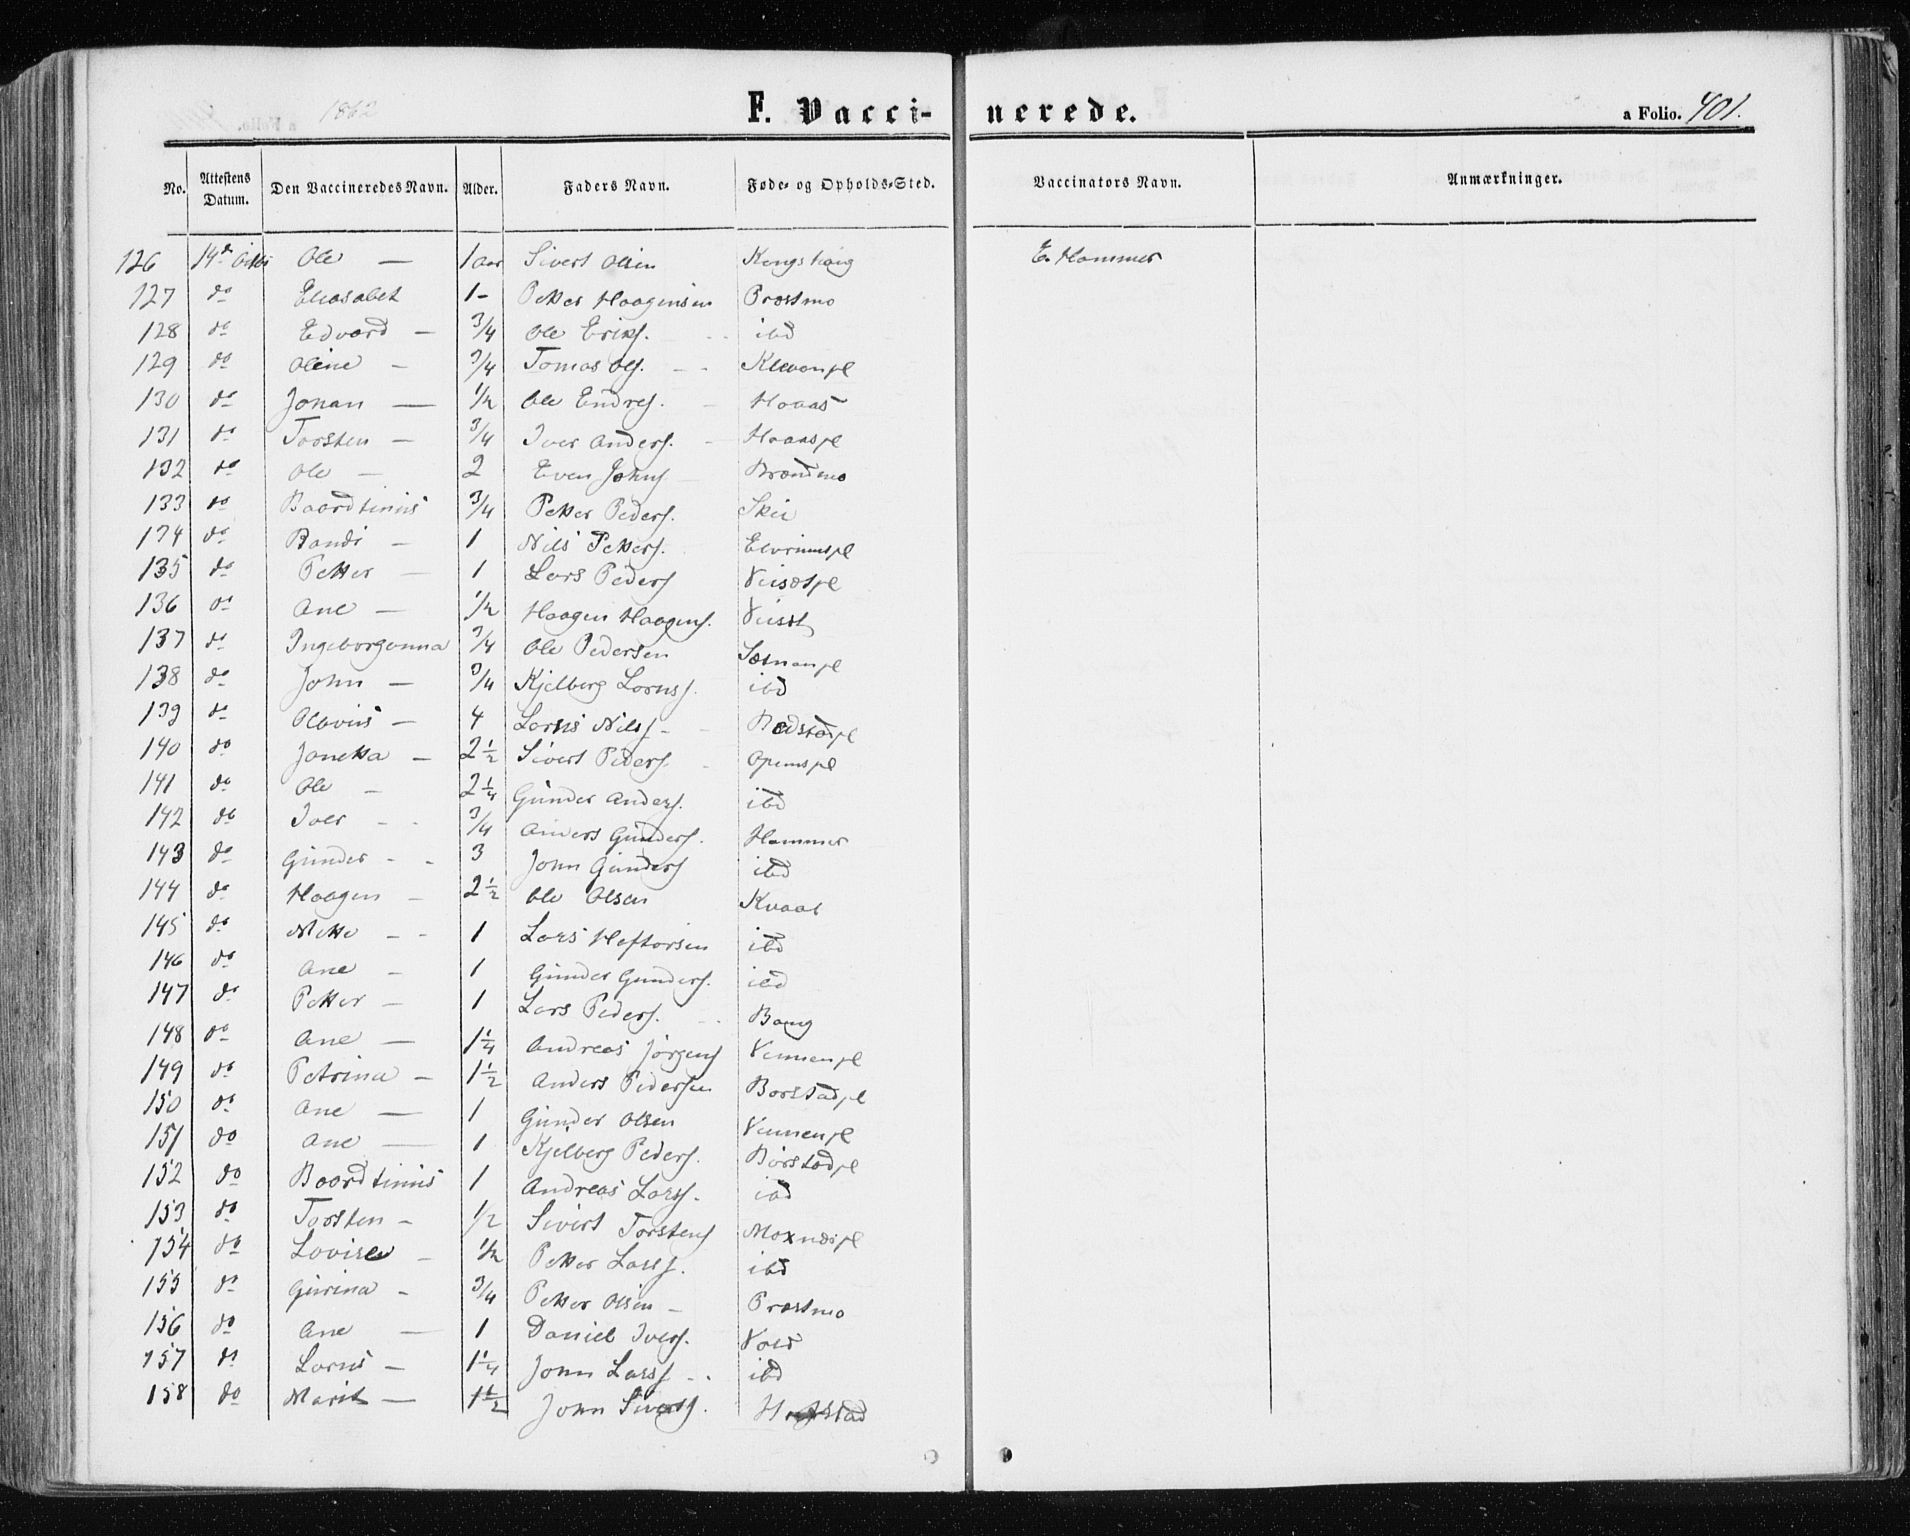 1862
F. Vacci-nerede.
a Folio. 401.
No. Attestens Datum. Den Vaccineredes Navn. Alder. Faders Navn. Føde- og Opholds-Sted. Vaccinators Navn. Anmærkninger.
126 14de Ole — 1 aar Sivert Olsen E. Hammer
127 do Elisabet 1- Petter Haagensen Præstmo
128 do Edvard — 3/4 Ole Eriks. ibd
129 do Oline — 3/4 Tomas Ols. Klevanpl
130 do Johan — 1/2 Ole Endres. Haaas
131 do Torsten — 3/4 Iver Anders. Haaaspl
132 do Ole — 2 Even Johns Brændmo
133 do Baardtinus 3/4 Petter Peders. Skei
134 do Randi — 1 Nils Petters. Elvrumspl
135 do Petter — 1 Lars Peders Veisetpl
136 do Ane — 1/2 Haagen Haagens. Veiset
137 do Ingeborganna 3/4 Ole Pedersen Sætnanpl
138 do John — 3/4 Kjelberg Lornts. ibd
139 do Olavius — 4 Lornts Nils
140 do Janetta — 2 1/2 Sivert Peders. Opemspl
141 do Ole — 2 1/4 Gunder Anders. ibd
142 do Iver 3/4 Anders Gunders. Hammer
143 do Gunder 3 John Gunders ibd
144 do Haagen — 2 1/2 Ole Olsen Kvaal
145 do Mette 1 Lars Hoftorsen ibd
146 do Ane — 1 Gunder Gunders. ibd
147 do Petter — 1 Lars Peders. Baug
148 do Ane — 1 1/4 Andreas Jørgens Vennenpl
149 do Petrina — 1 1/2 Anders Pedersen Borstadpl
150 do Ane — 1 Gunder Olsen Vennenpl
151 do Ane — 1 Kjelberg Peders. Børstadpl
152 do Baardtinus 1 Andreas Larss. ibd
153 do Torsten — 1/2 Sivert Torstens Moxnæspl
154 do Lovise — 1/2 Petter Larss. ibd
155 do Gurina — 3/4 Petter Olsen — Præstmo
156 do Ane — 1 Daniel Ivers. Vold
157 do Lornts — 1 1/4 John Larss ibd
158 do Marit — 1 1/2 John Siverts.